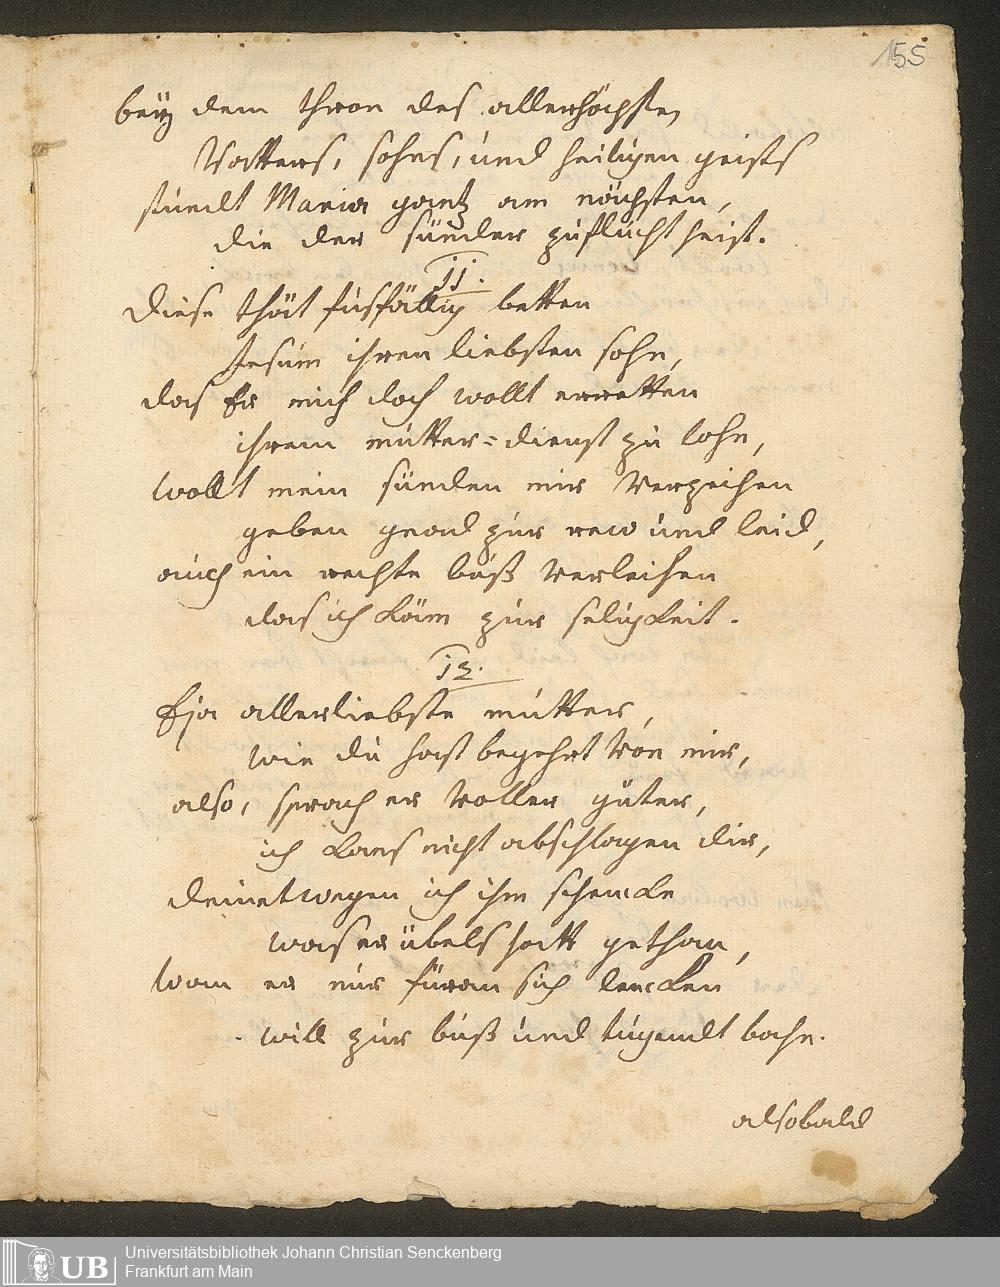 155
beÿ dem thron des allerhöchsten
Vatters, sohns, und heiligen geists
stundt Maria gantz am nächsten,
die der sünder zuflucht heist.
11.
Diese thät fusfällig betten
Jesum ihren liebsten sohn,
das Er mich doch wollt erretten
ihrem mutter=dienst zu lohn,
wollt mein sünden mir Verzeihen
geben gnad zur rew und leid,
auch ein rechte buß Verleihen
das ich käm zur seligkeit.
12.
Eja allerliebste mutter,
wie du hast begehrt von mir,
also, sprach er Voller güter,
ich kans nicht abschlagen dir,
deinetwegen ich ihm schencke
was er übels hatt gethan,
wan er nur füran sich lencken
will zur buß und tugendt bahn.
alsobald
UB
Universitätsbibliothek Johann Christian Senckenberg
Frankfurt am Main